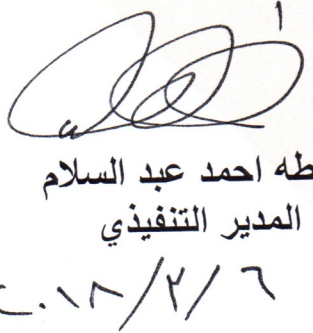 طه احمد عبد السلام
المدير التنفيذي
٢٠١٨/٣/٦